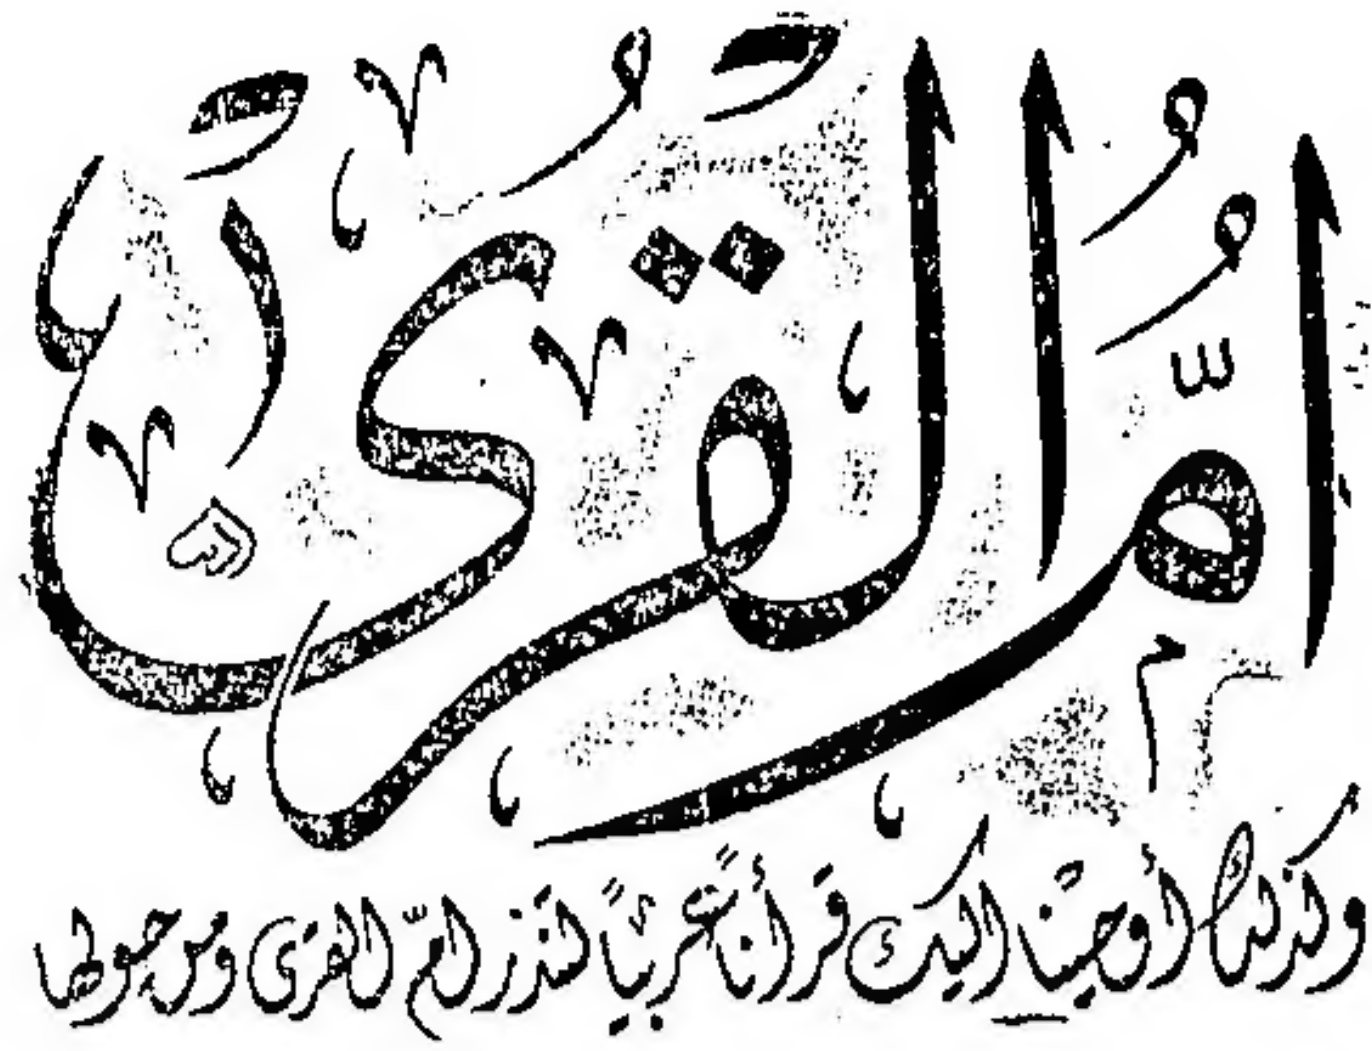 أُمُّ القُرَى
وكذلك أوحينا إليك قرأناً عربياً لتنذر امّ القرى ومن حولها